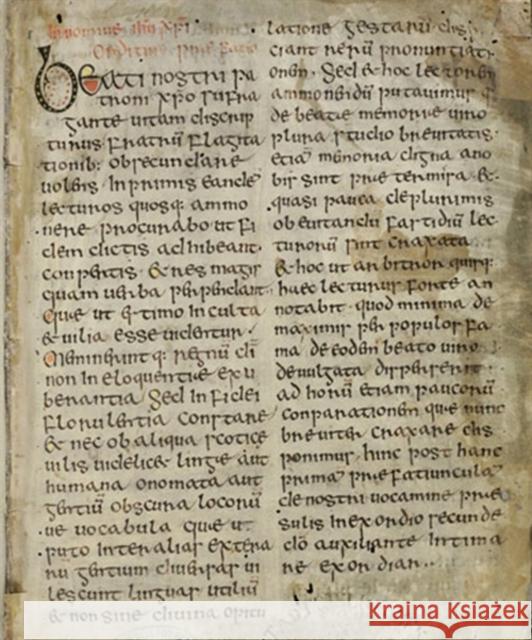 In nomine ihu xpi
Orditur prefatio
Beati nostri pa
troni xpo sufra
gante uitam discrip
turus fratrū flagita
tionib; obsecundare
uolens. In primis eandē
lecturos quosq; ammo
nere procurabo ut fi
dem dictis adhibeant.
conpertis. & res magis
quam uerba perpendant.
que ut estimo Inculta
& uilia esse uidentur.
Meminerint q; regnū dī
non In eloquentie exu
berantia. Sed In fidei
florulentia constare
& nec ob aliqua scotice
uilis uidelic& linge aut
humana onomata aut
gentiū obscura locorū
ue uocabula que ut
puto Inter alias extera
rū gentium diuersas ui
lescunt linguas utiliū
& non sine diuina opitu
latione gestarū dis
ciant rerū pronuntiati
onem. Sed & hoc lectorem
ammonendū putauimus q
de beate memorie uiro
plura studio breuitatis.
etiā memoria digna ano
bis sint pretermisa. &
quasi pauca de plurimis
ob euitandū fastidiū lec
turorū sint craxata
& hoc ut arbitror quisq;
haec lecturus forte an
notabit. quod minima de
maximis per populos fa
ma de eodem beato uiro
deuulgata disperserit
ad horū etiam paucorū
conparationem que nunc
breuiter craxare dis
ponimus. hinc post hanc
primā prefatiunculā
de nostri uocamine pre
sulis In exordio secunde
dō auxiliante Intima
re exordiar.